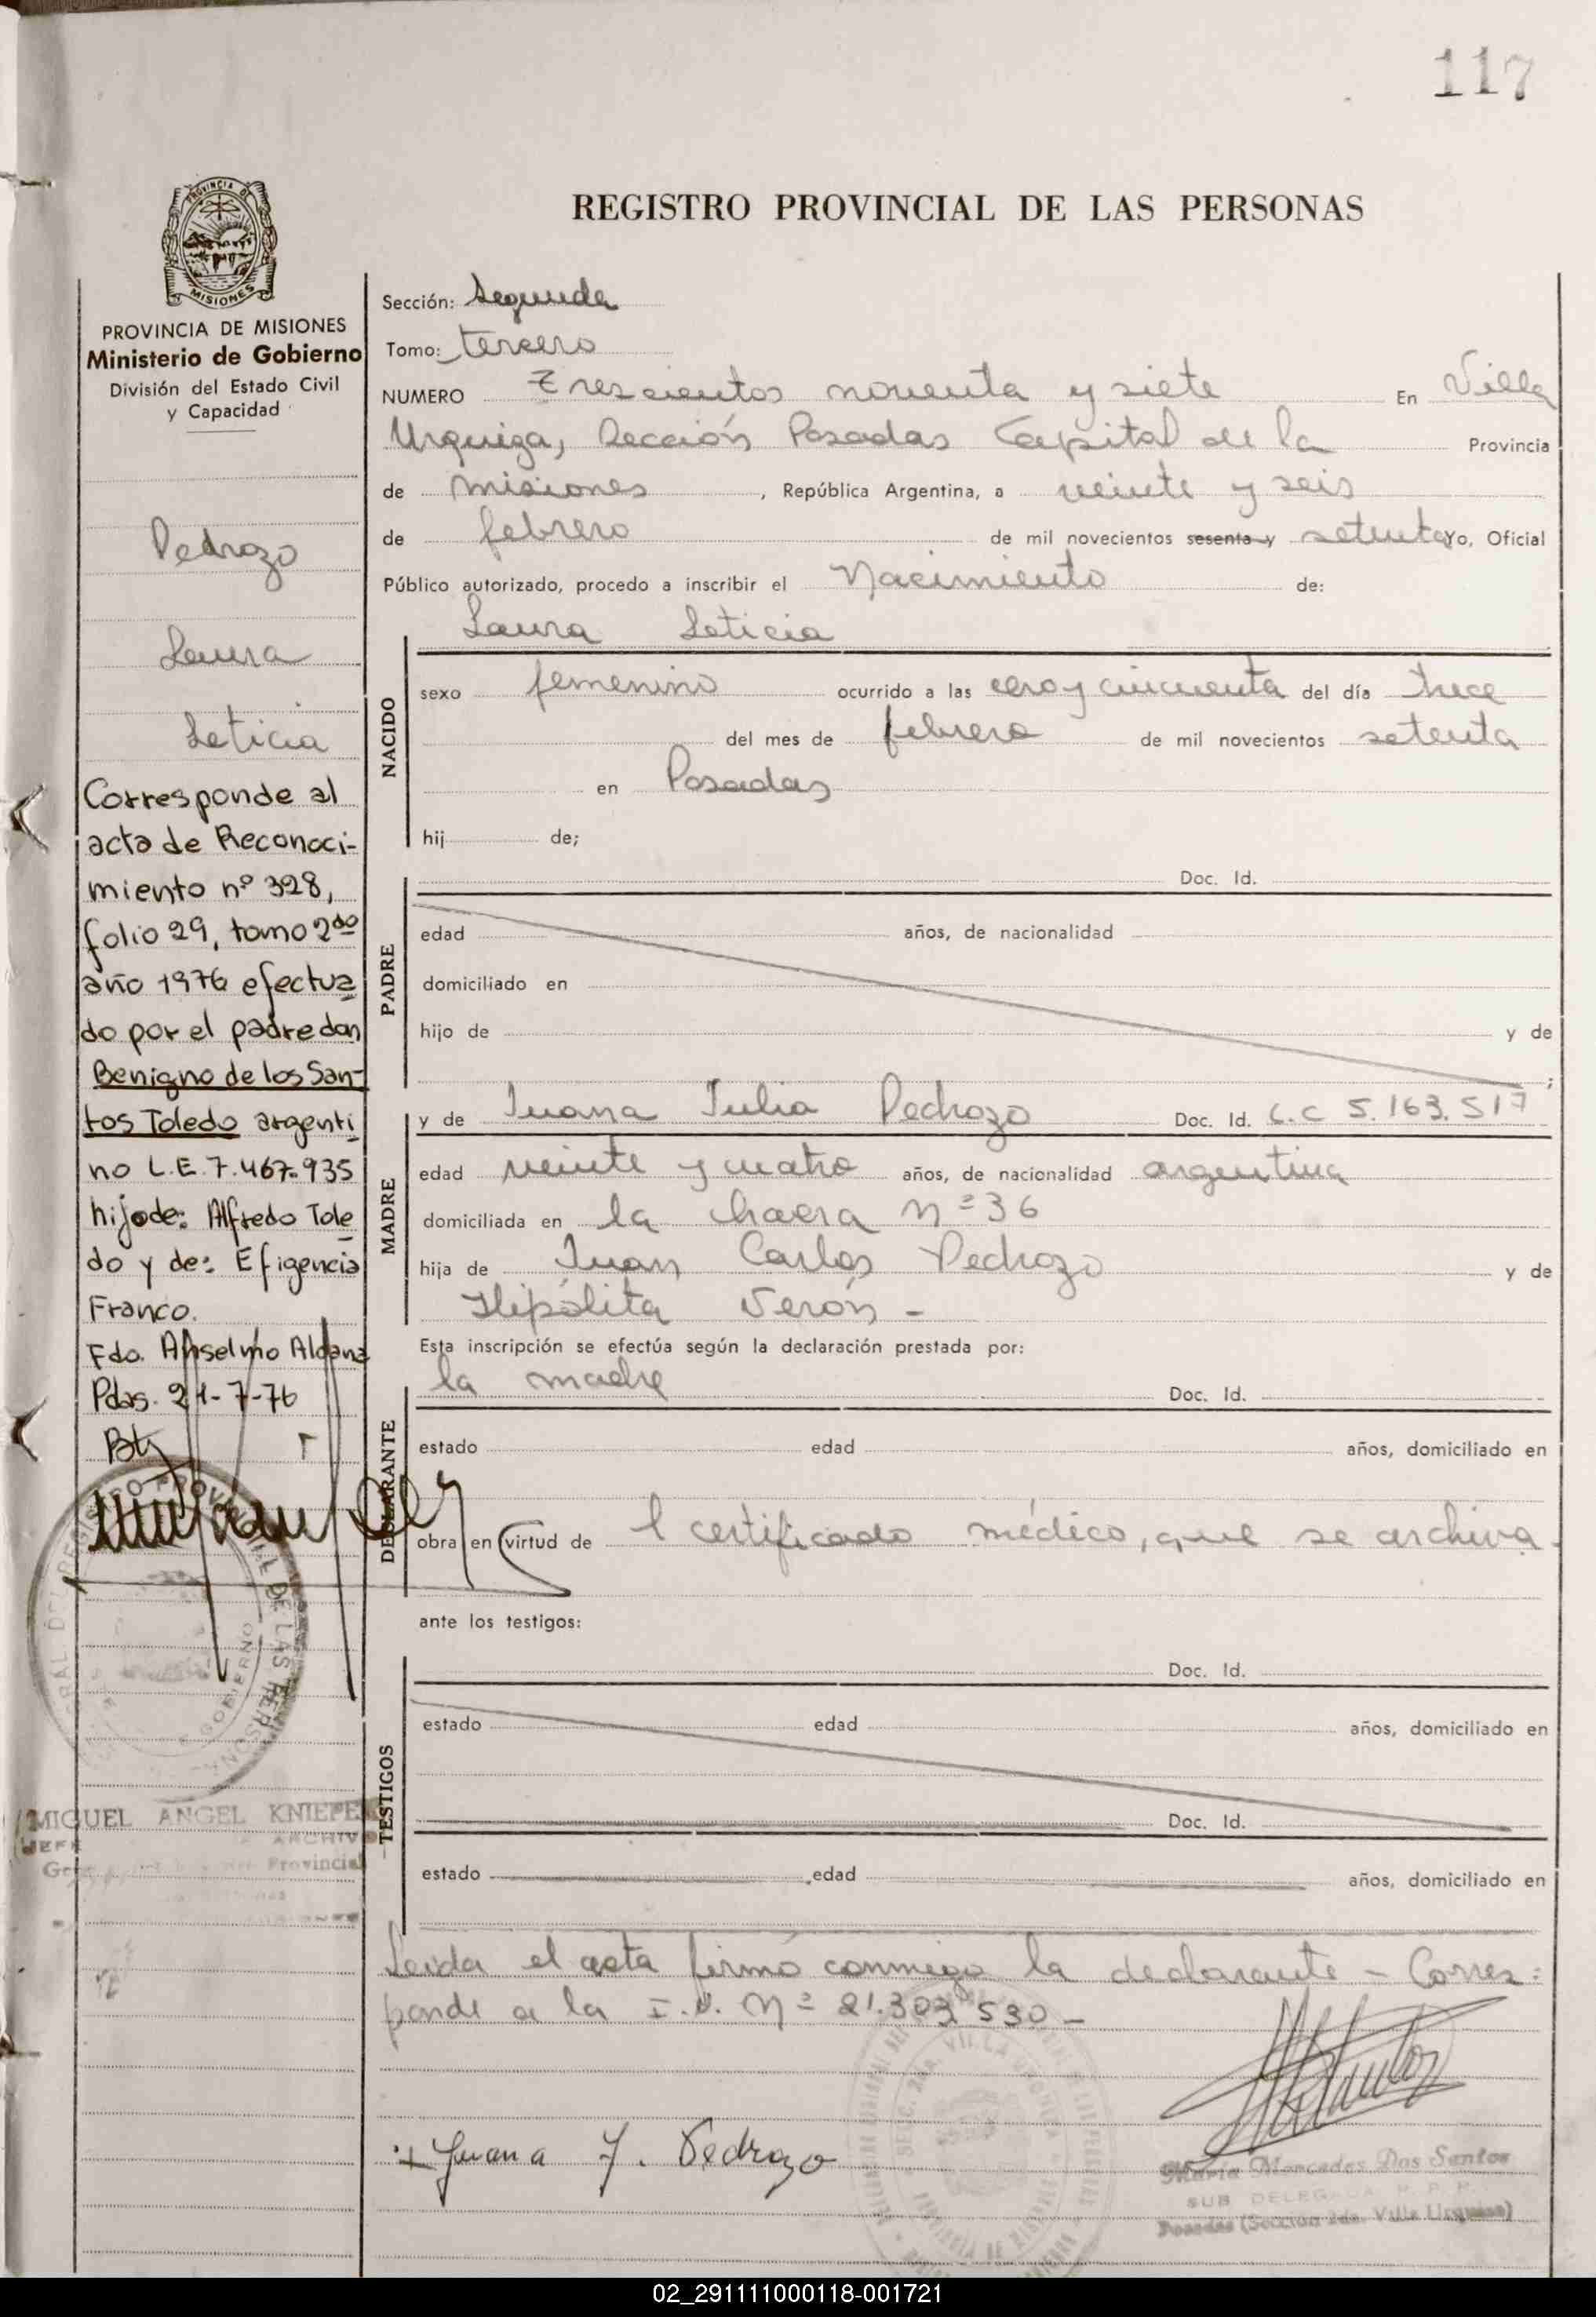 117
PROVINCIA DE
MISIONES
REGISTRO PROVINCIAL DE LAS PERSONAS
PROVINCIA DE MISIONES
Ministerio de Gobierno
División del Estado Civil
y Capacidad
Pedrozo
Laura
Leticia
Corresponde al
acta de Reconoci-
miento nº 328,
folio 29, tomo 2do
año 1976 efectua
do por el padre don
Benigno de los San-
tos Toledo argenti
no L.E. 7.467.935
hijo de: Alfredo Tole
do y de: Efigencia
Franco.
Fdo. Anselmo Aldana
Pdas. 21-7-76
MIGUEL ANGEL KNIEPE
JEFE ARCHIVO
Provincial
Sección: Segunda
Tomo: tercero
NUMERO Trescientos noventa y siete En Villa
Urquiza, Sección Posadas Capital de la Provincia
de misiones, República Argentina, a veinte y seis
de febrero de mil novecientos sesenta y setenta Yo, Oficial
Público autorizado, procedo a inscribir el Nacimiento de:
Laura Leticia
NACIDO
sexo femenino ocurrido a las cero y cincuenta del día trece
del mes de febrero de mil novecientos setenta
en Posadas
hij de;
Doc. Id.
PADRE
edad años, de nacionalidad
domiciliado en
hijo de y de
;
y de Juana Julia Pedrozo Doc. Id. C.C 5.163.517
MADRE
edad veinte y cuatro años, de nacionalidad argentina
domiciliada en la chacra Nº 36
hija de Juan Carlos Pedrozo y de
Hipólita Verón -
Esta inscripción se efectúa según la declaración prestada por:
la madre Doc. Id.
DECLARANTE
estado edad años, domiciliado en
obra en virtud de l certificado médico, que se archiva.
ante los testigos:
Doc. Id.
TESTIGOS
estado edad años, domiciliado en
Doc. Id.
estado edad años, domiciliado en
Leida el acta firmó conmigo la declarante - Corres=
ponde a la I.D. Nº 21.303 530 -
Juana J. Pedrozo
María Mercedes Dos Santos
SUB DELEGADA R.P.P.
Posadas (Sección 2da. Villa Urquiza)
02_291111000118-001721